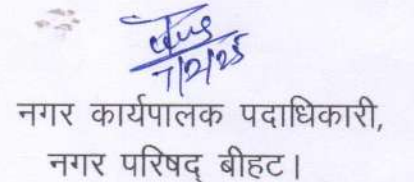 7/2/25
नगर कार्यपालक पदाधिकारी,
नगर परिषद् बीहट।